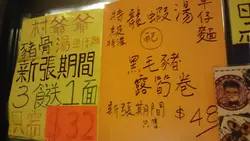 村爺爺
豬骨湯車仔麵
新張期間
3餸1面
$32
龍蝦湯車仔麵
配
黑毛豬
露筍卷
新張期間
只售
$48